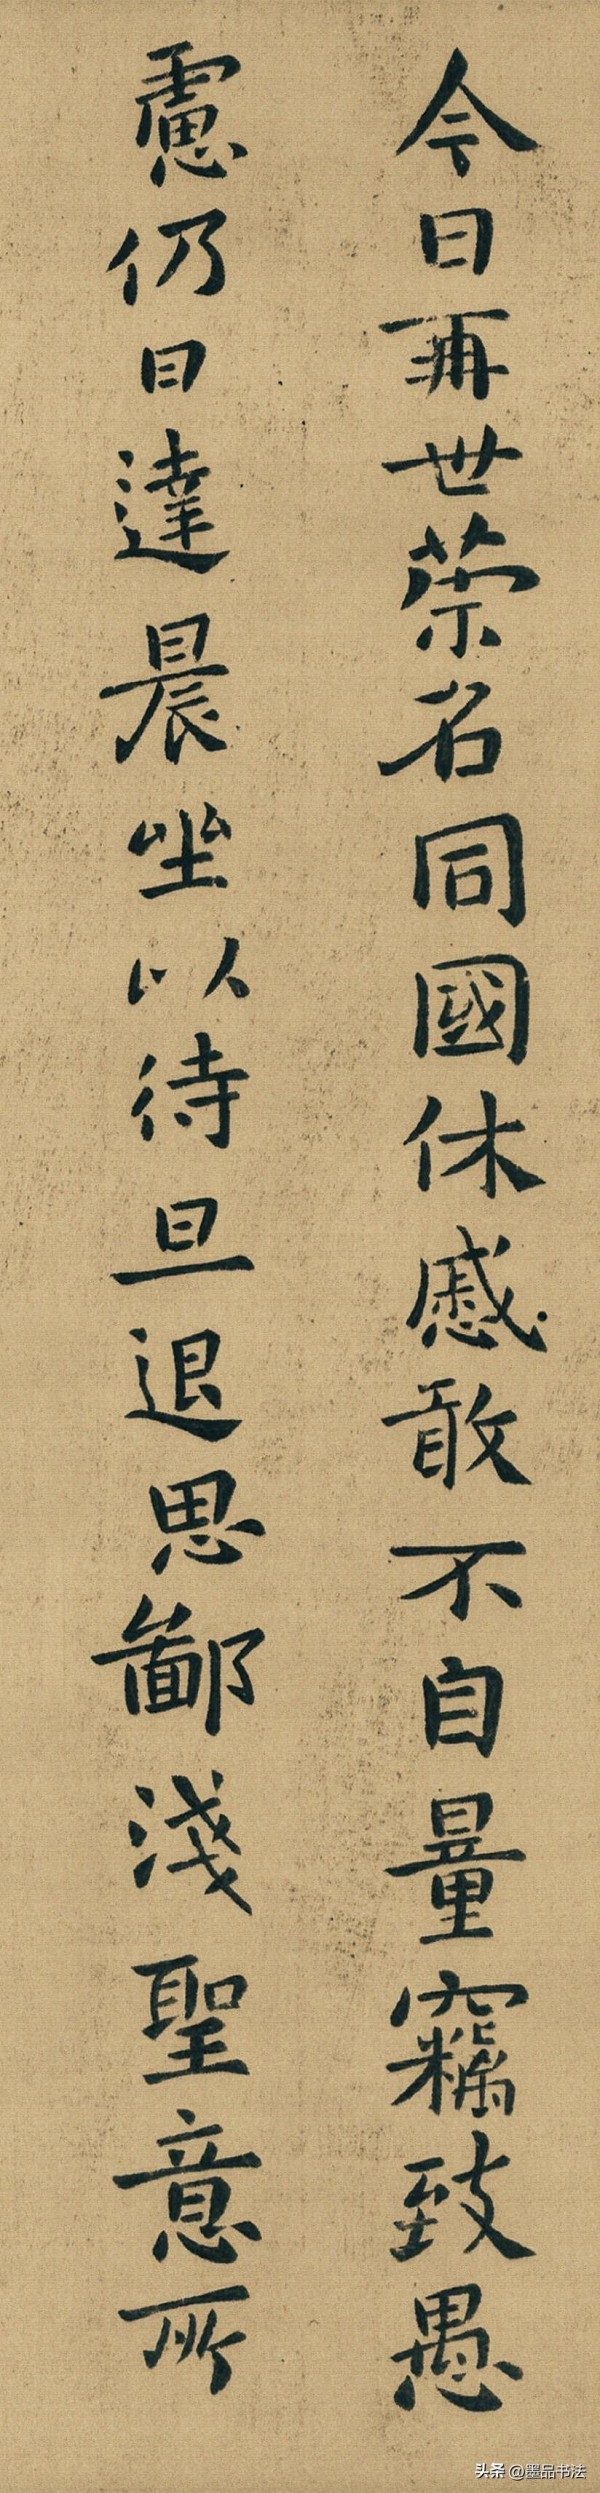 今日再世榮名同國休慼敢不自量竊致愚
慮仍日達晨坐以待旦退思鄙淺聖意所
头条 @墨品书法